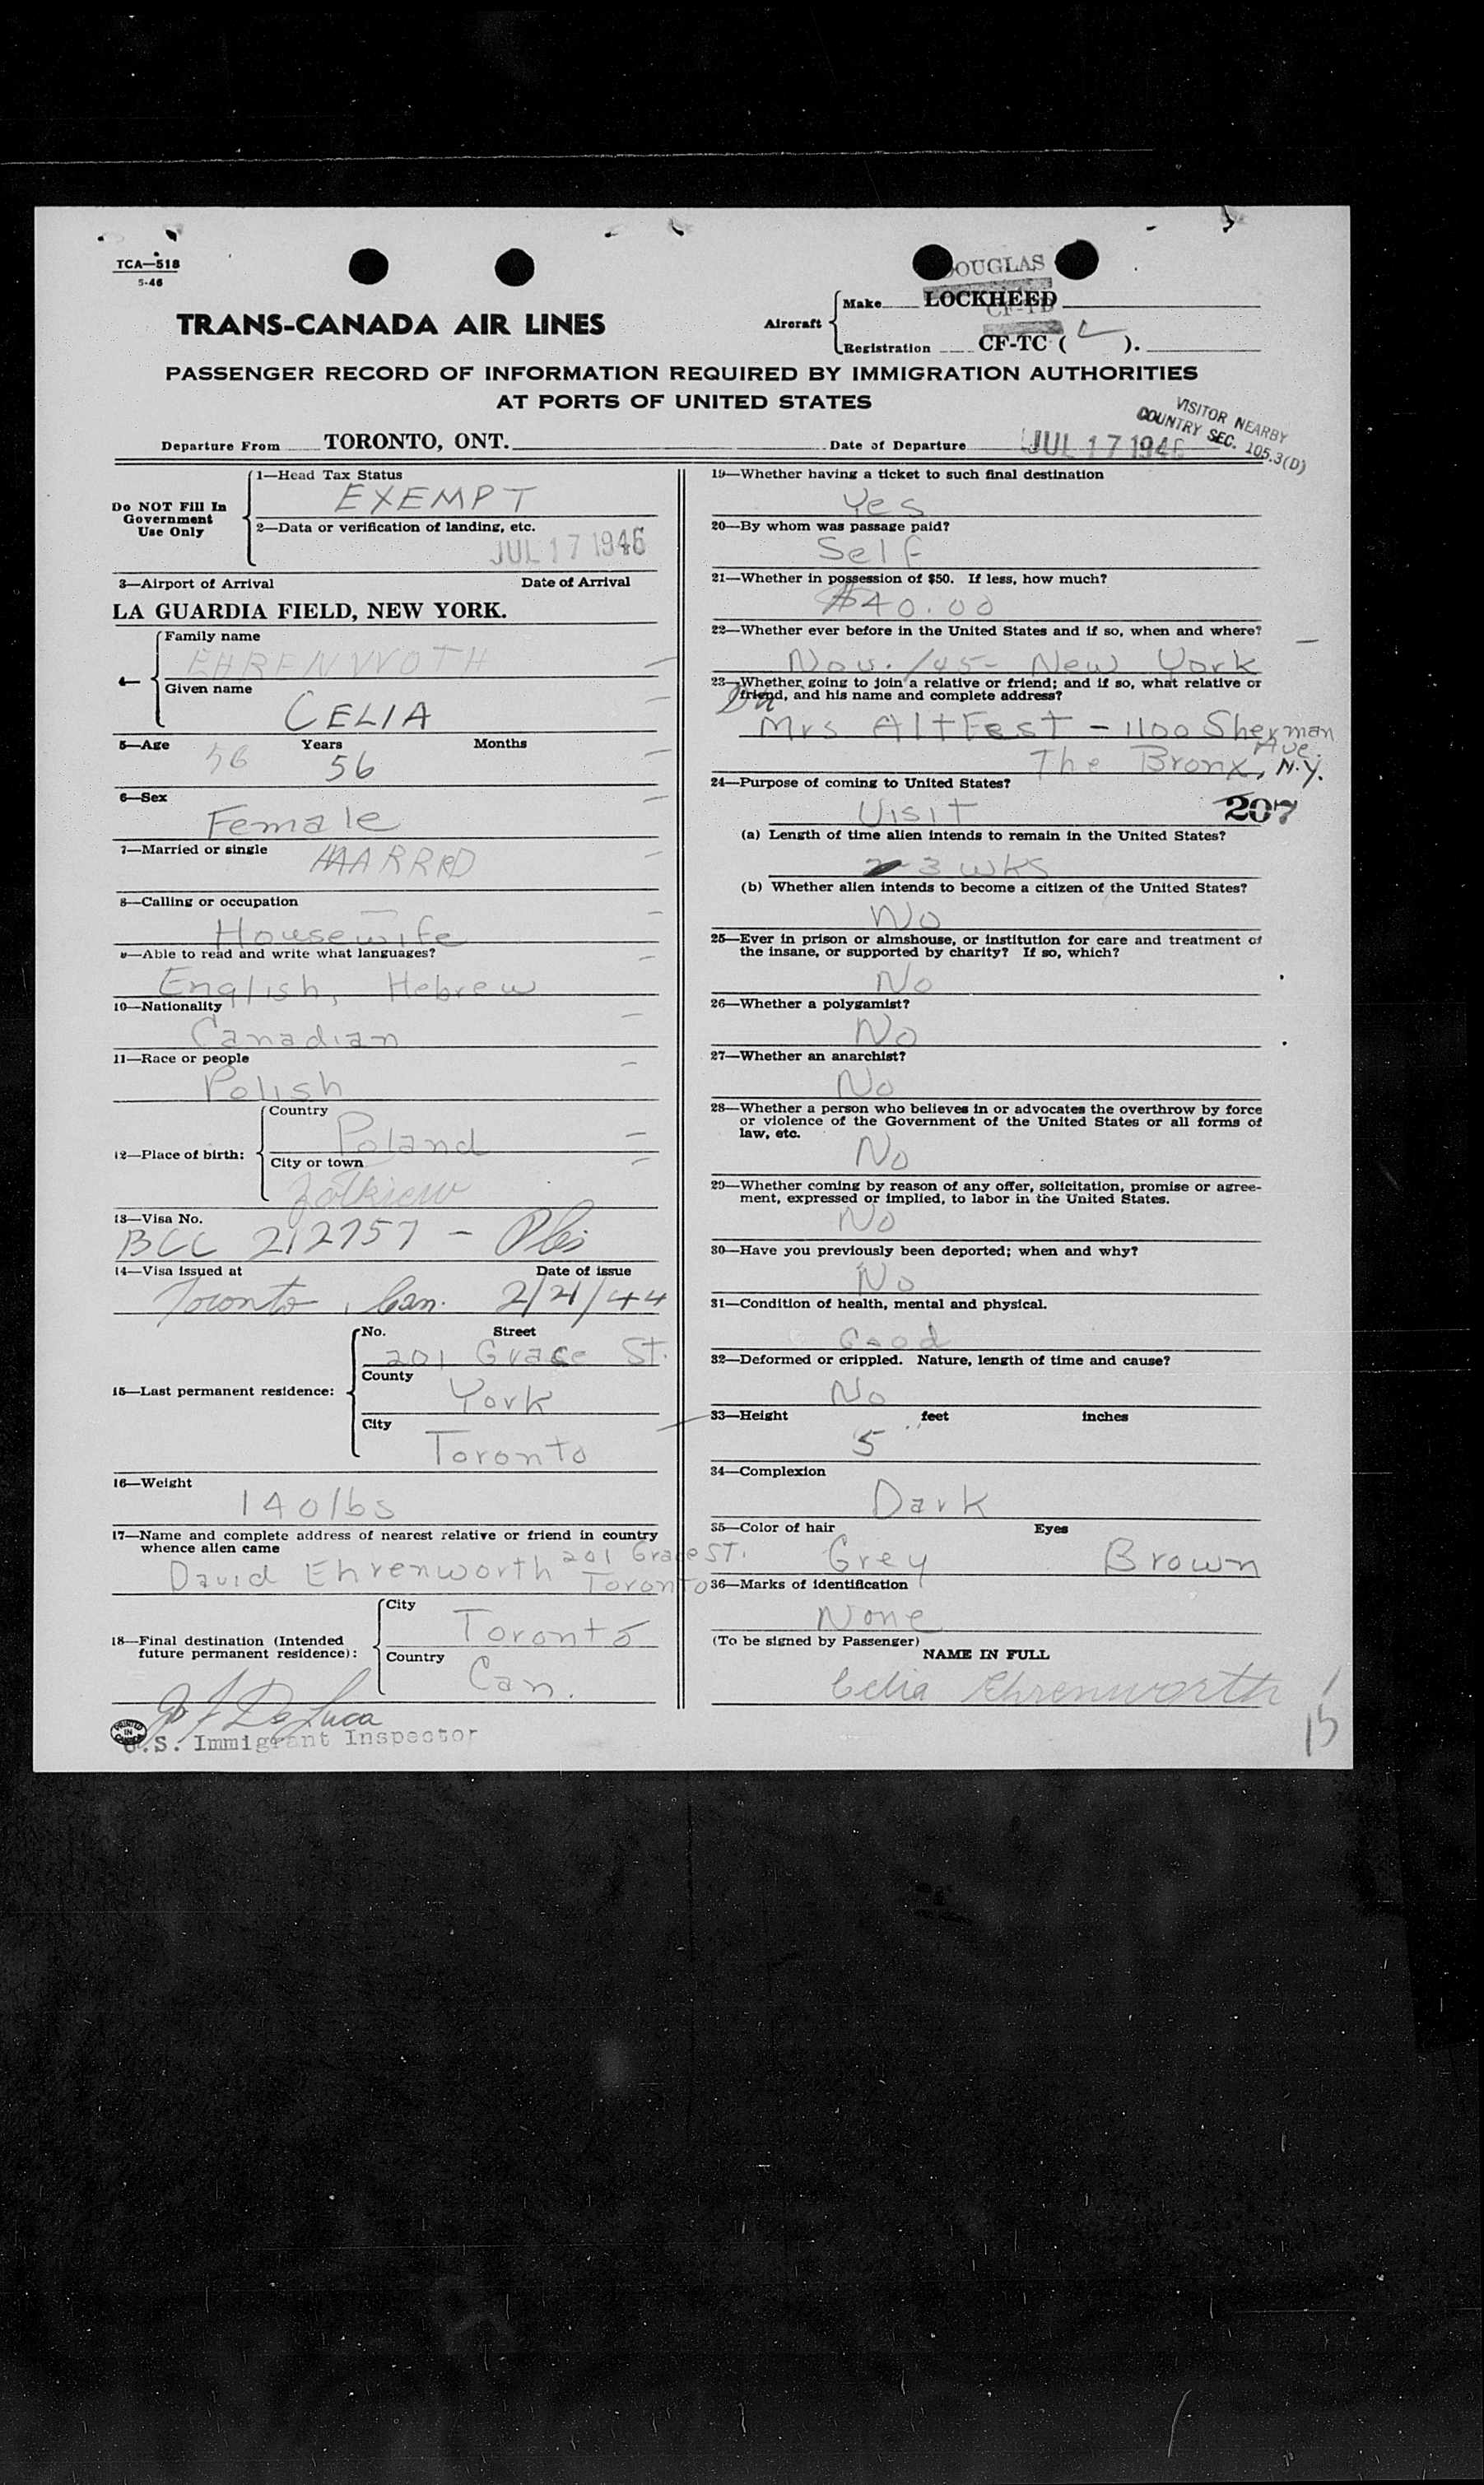 TCA—518
5-46
TRANS-CANADA AIR LINES
DOUGLAS
Aircraft
Make LOCKHEED
CF-TD
Registration CF-TC ( L ).
PASSENGER RECORD OF INFORMATION REQUIRED BY IMMIGRATION AUTHORITIES
AT PORTS OF UNITED STATES
VISITOR NEARBY
COUNTRY SEC. 105.3(D)
Departure From TORONTO, ONT. Date of Departure JUL 17 1946
Do NOT Fill In
Government
Use Only
1—Head Tax Status
EXEMPT
2—Data or verification of landing, etc.
JUL 17 1946
3—Airport of Arrival Date of Arrival
LA GUARDIA FIELD, NEW YORK.
4—
Family name
EHRENWOTH
Given name
CELIA
5—Age Years Months
56 56
6—Sex
Female
7—Married or single
MARRRD
8—Calling or occupation
Housewife
9—Able to read and write what languages?
English, Hebrew
10—Nationality
Canadian
11—Race or people
Polish
12—Place of birth:
Country
Poland
City or town
Zolkiew
13—Visa No.
BCC 212757 –
14—Visa issued at Date of issue
Toronto, Can. 2/21/44
15—Last permanent residence:
No. Street
201 Grace St.
County
York
City
Toronto
16—Weight
140 lbs
17—Name and complete address of nearest relative or friend in country
whence alien came
David Ehrenworth 201 Grace ST.
Toronto
18—Final destination (Intended
future permanent residence):
City
Toronto
Country
Can.
De Luca
U.S. Immigrant Inspector
PRINTED
IN
CANADA
19—Whether having a ticket to such final destination
Yes
20—By whom was passage paid?
Self
21—Whether in possession of $50. If less, how much?
$40.00
22—Whether ever before in the United States and if so, when and where?
Nov. /45- New York
23—Whether going to join a relative or friend; and if so, what relative or
friend, and his name and complete address?
Mrs AltFest – 1100 Sherman
Ave.
The Bronx, N.Y.
24—Purpose of coming to United States?
Visit
207
(a) Length of time alien intends to remain in the United States?
2-3 wks
(b) Whether alien intends to become a citizen of the United States?
No
25—Ever in prison or almshouse, or institution for care and treatment of
the insane, or supported by charity? If so, which?
No
26—Whether a polygamist?
No
27—Whether an anarchist?
No
28—Whether a person who believes in or advocates the overthrow by force
or violence of the Government of the United States or all forms of
law, etc.
No
29—Whether coming by reason of any offer, solicitation, promise or agree-
ment, expressed or implied, to labor in the United States.
No
30—Have you previously been deported; when and why?
No
31—Condition of health, mental and physical.
Good
32—Deformed or crippled. Nature, length of time and cause?
No
33—Height feet inches
5
34—Complexion
Dark
35—Color of hair Eyes
Grey Brown
36—Marks of identification
None
(To be signed by Passenger)
NAME IN FULL
Celia Ehrenworth
15